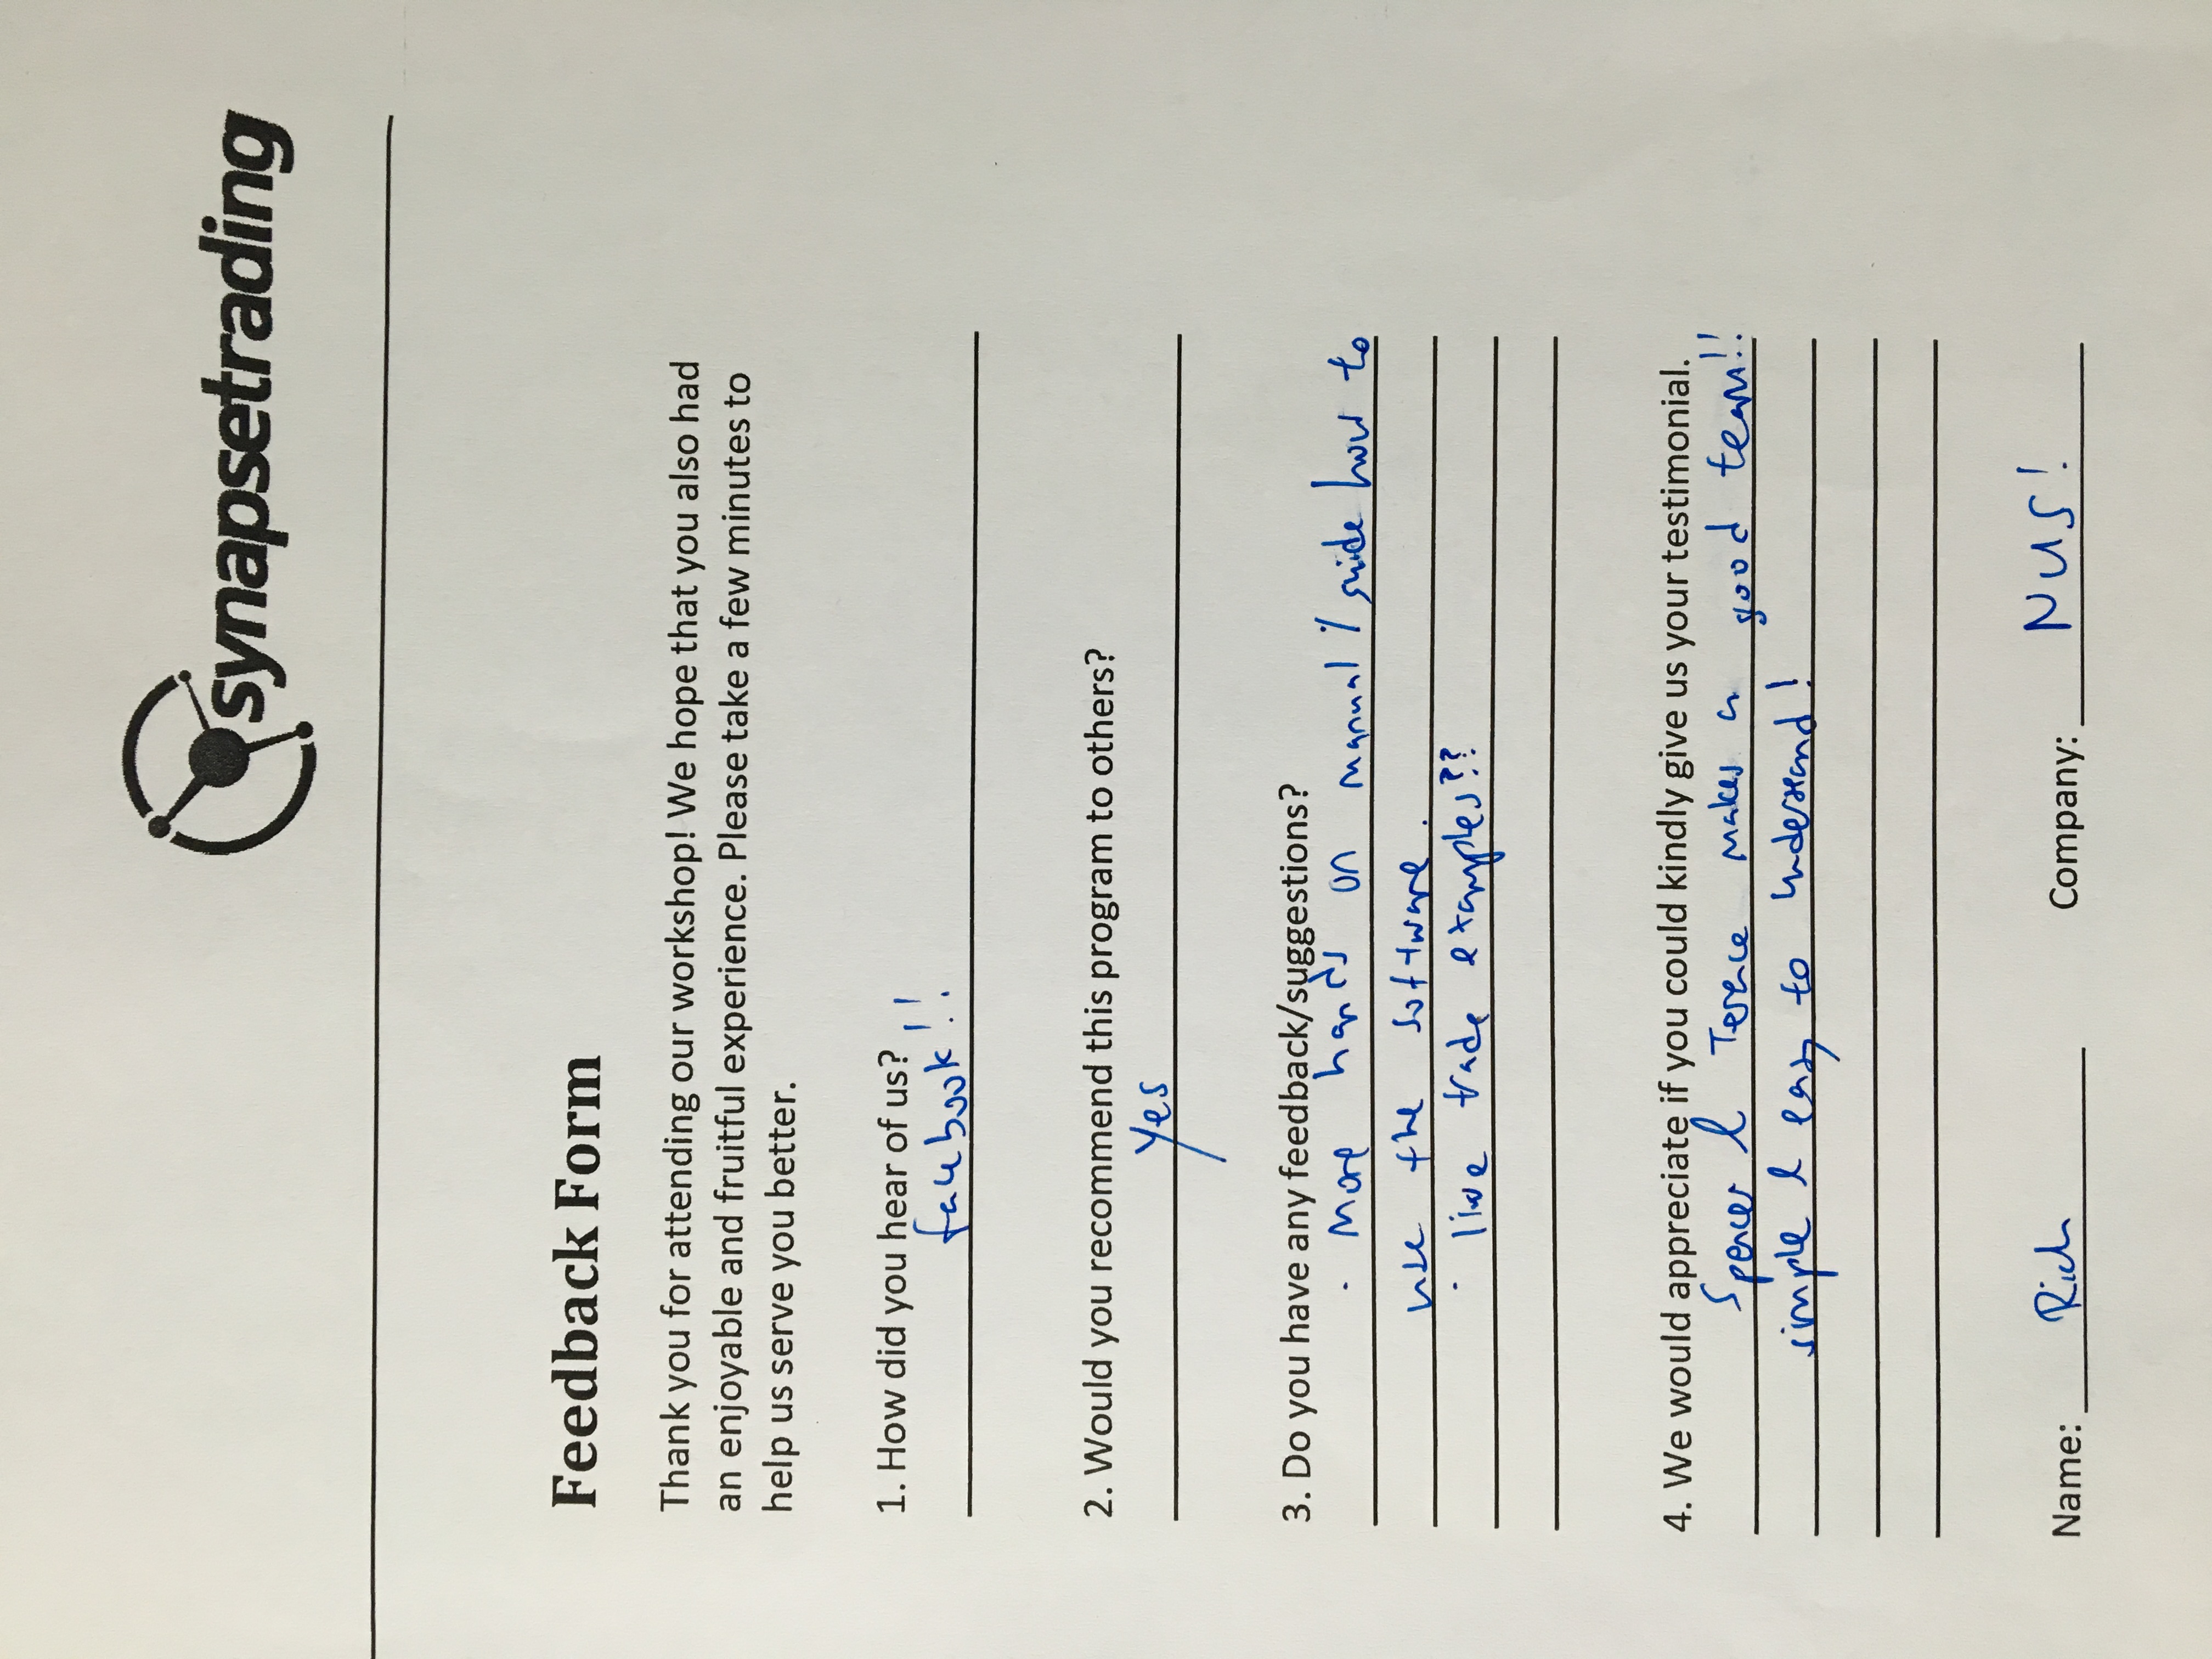 synapsetrading
Feedback Form
Thank you for attending our workshop! We hope that you also had
an enjoyable and fruitful experience. Please take a few minutes to
help us serve you better.
1. How did you hear of us?
facebook!!
2. Would you recommend this program to others?
Yes
3. Do you have any feedback/suggestions?
· more hands on manual / guide how to
use the software.
· live trade examples??
4. We would appreciate if you could kindly give us your testimonial.
Spencer & Terence makes a good team!!
simple & easy to understand!
Name: Rich Company: NUS!